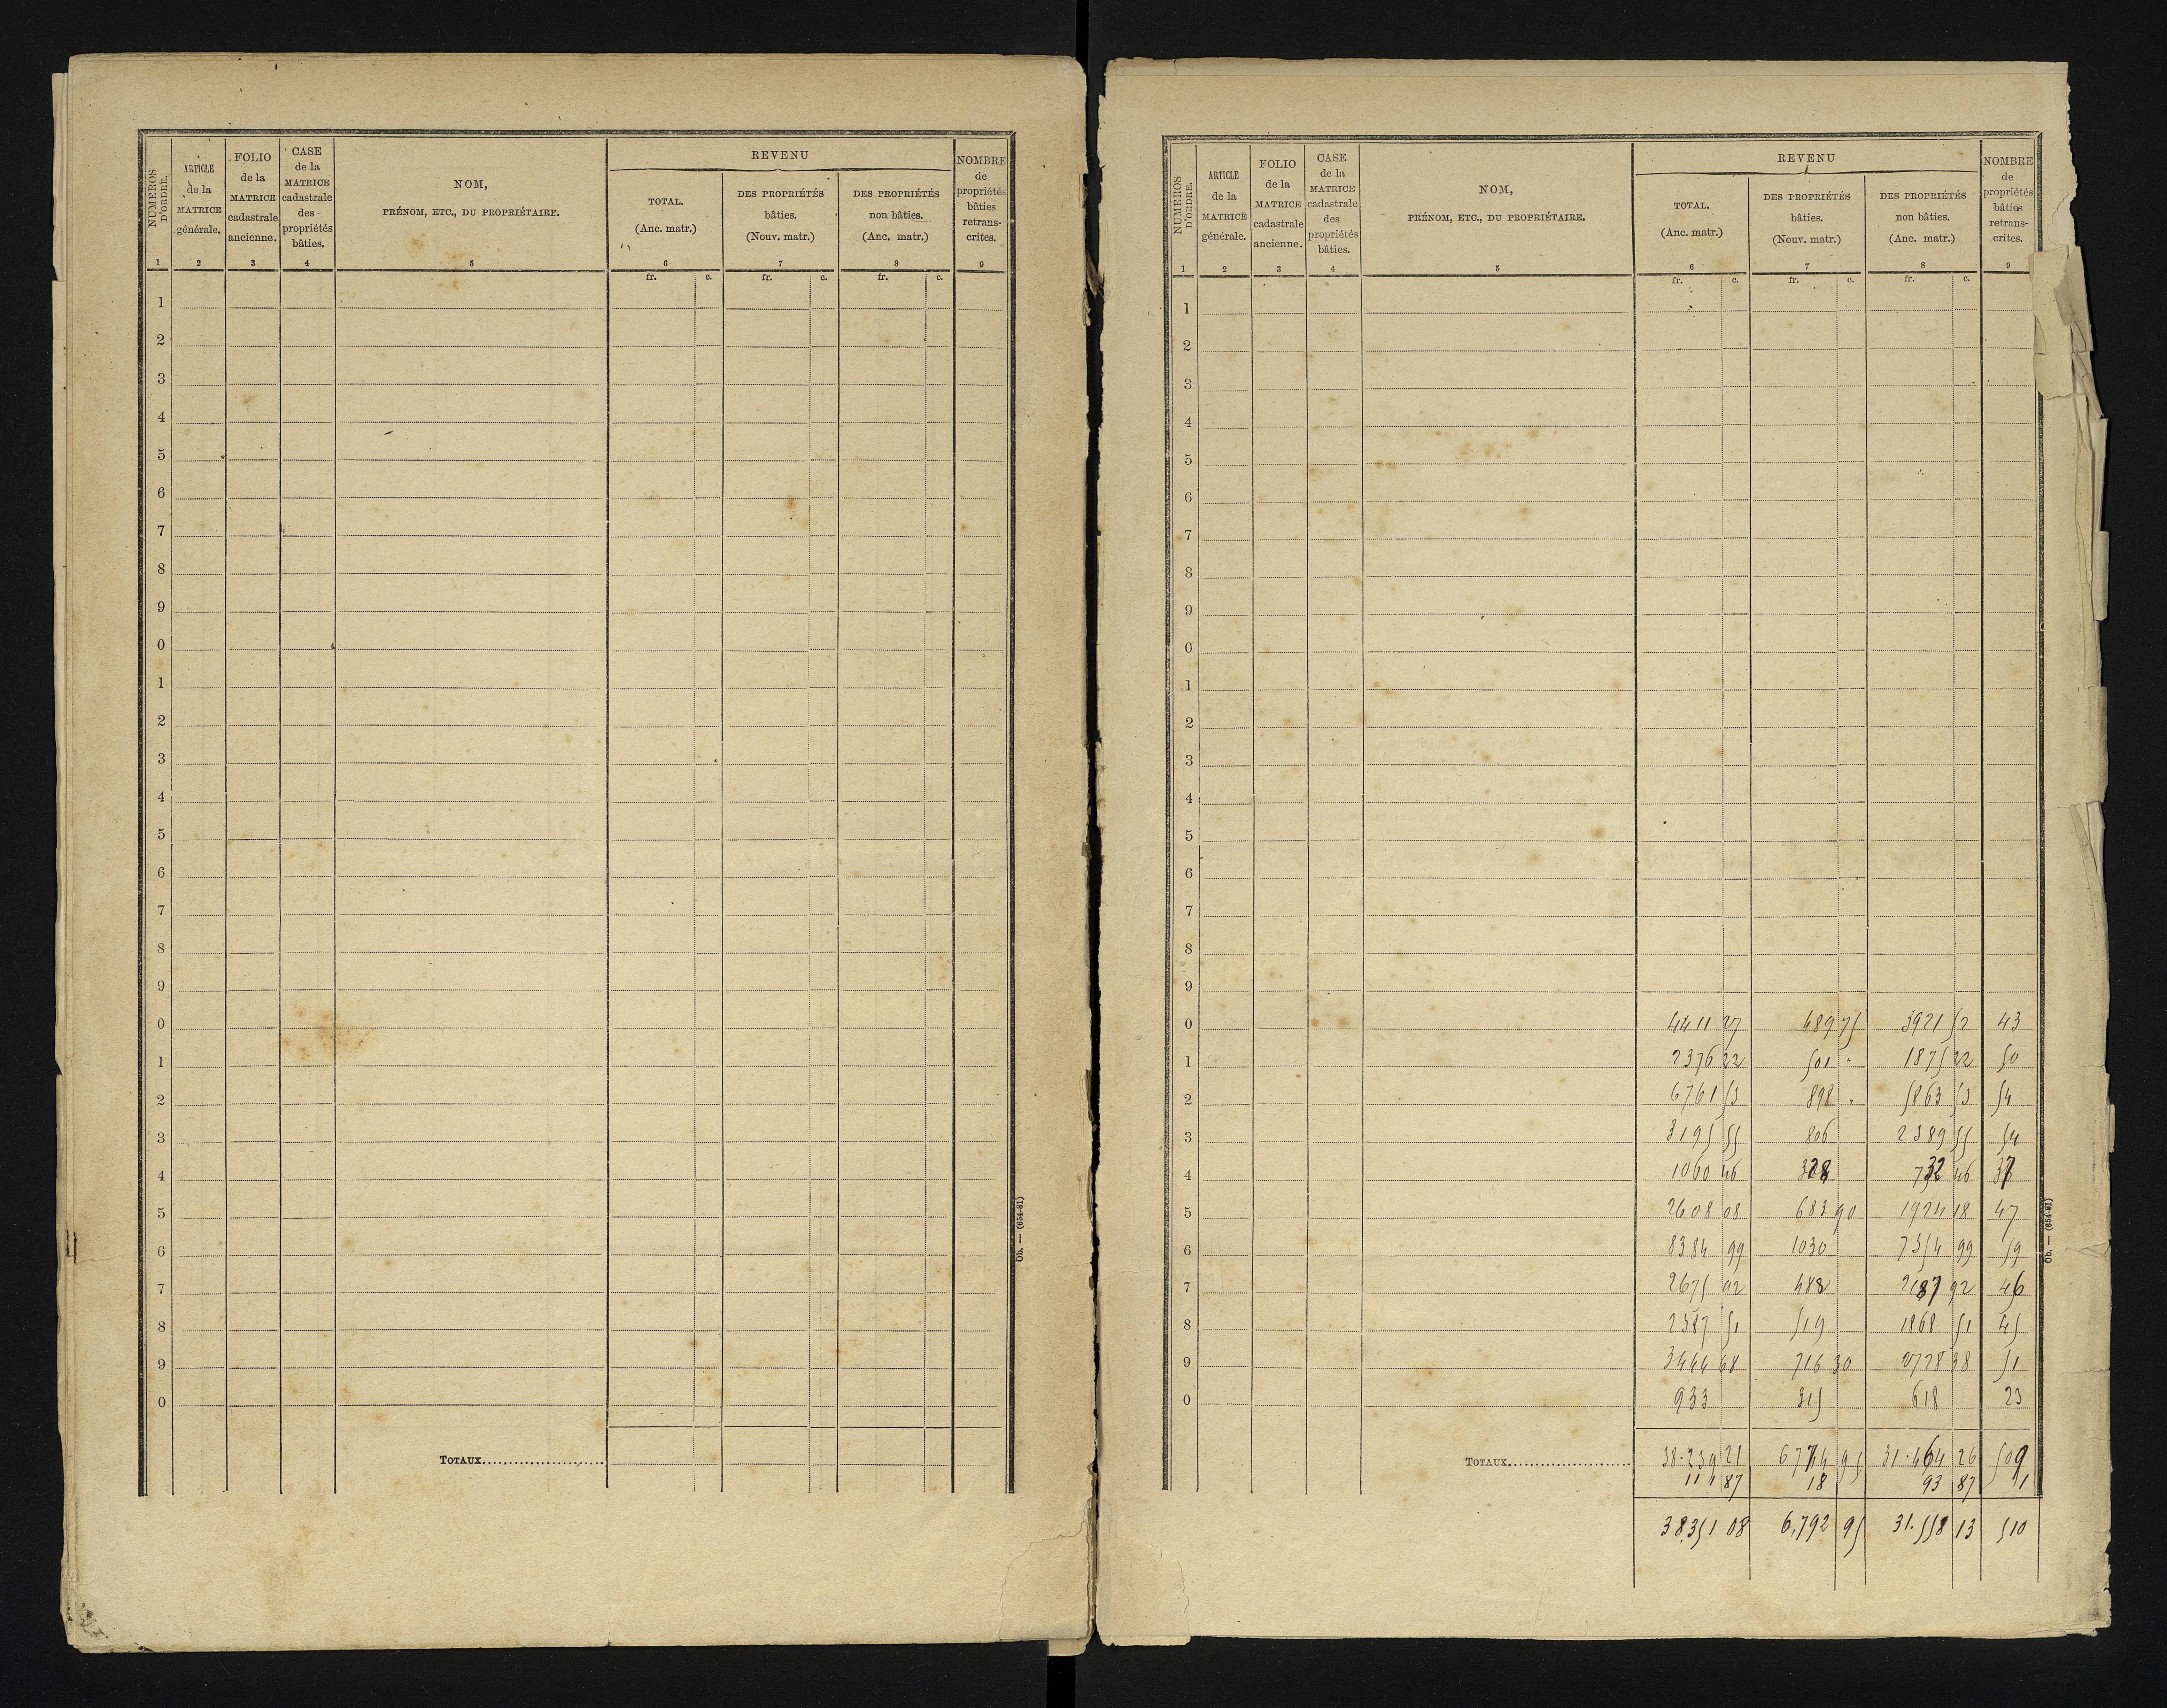 NUMEROS D'ORDRE.
ARTICLE de la MATRICE générale.
FOLIO de la MATRICE cadastrale ancienne.
CASE de la MATRICE cadastrale des propriétés bâties.
NOM, PRÉNOM, ETC., DU PROPRIÉTAIRE.
REVENU
TOTAL. (Anc. matr.)
DES PROPRIÉTÉS bâties. (Nouv. matr.)
DES PROPRIÉTÉS non bâties. (Anc. matr.)
NOMBRE de propriétés bâties retrans-crites.
1 2 3 4 5 6 7 8 9
fr. c. fr. c. fr. c.
1
2
3
4
5
6
7
8
9
0
1
2
3
4
5
6
7
8
9
0
1
2
3
4
5
6
7
8
9
0
TOTAUX
Ob. — (654-81)
NUMEROS D'ORDRE.
ARTICLE de la MATRICE générale.
FOLIO de la MATRICE cadastrale ancienne.
CASE de la MATRICE cadastrale des propriétés bâties.
NOM, PRÉNOM, ETC., DU PROPRIÉTAIRE.
REVENU
TOTAL. (Anc. matr.)
DES PROPRIÉTÉS bâties. (Nouv. matr.)
DES PROPRIÉTÉS non bâties. (Anc. matr.)
NOMBRE de propriétés bâties retrans-crites.
1 2 3 4 5 6 7 8 9
fr. c. fr. c. fr. c.
1
2
3
4
5
6
7
8
9
0
1
2
3
4
5
6
7
8
9
0 4411 27 489 75 3921 52 43
1 2376 22 501 " 1875 22 50
2 6761 53 898 " 5863 53 54
3 3195 55 806 2389 55 54
4 1060 46 328 732 46 37
5 2608 08 683 90 1924 18 47
6 8384 99 1030 7354 99 59
7 2675 92 488 2187 92 46
8 2387 51 519 1868 51 45
9 3444 68 716 30 2728 38 51
0 933 315 618 23
TOTAUX 38.239 21 6774 95 31.464 26 509
111 87 18 93 87 1
38,351 08 6,792 95 31.558 13 510
Ob. — (654-81)